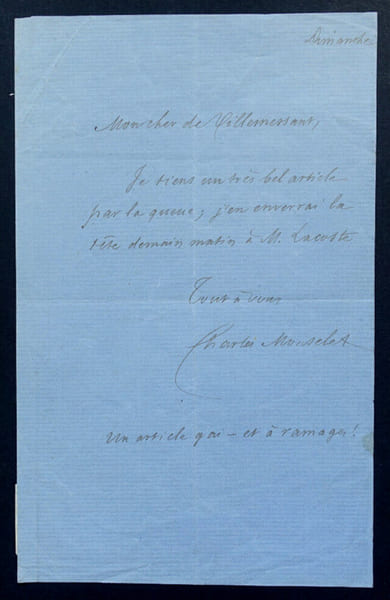 Dimanche
Mon cher de Villemessant,
Je tiens un très bel article
par la queue; j'en enverrai la
tête demain matin à M. Lacoste
Tout à vous
Charles Monselet
Un article gai – et à ramages!